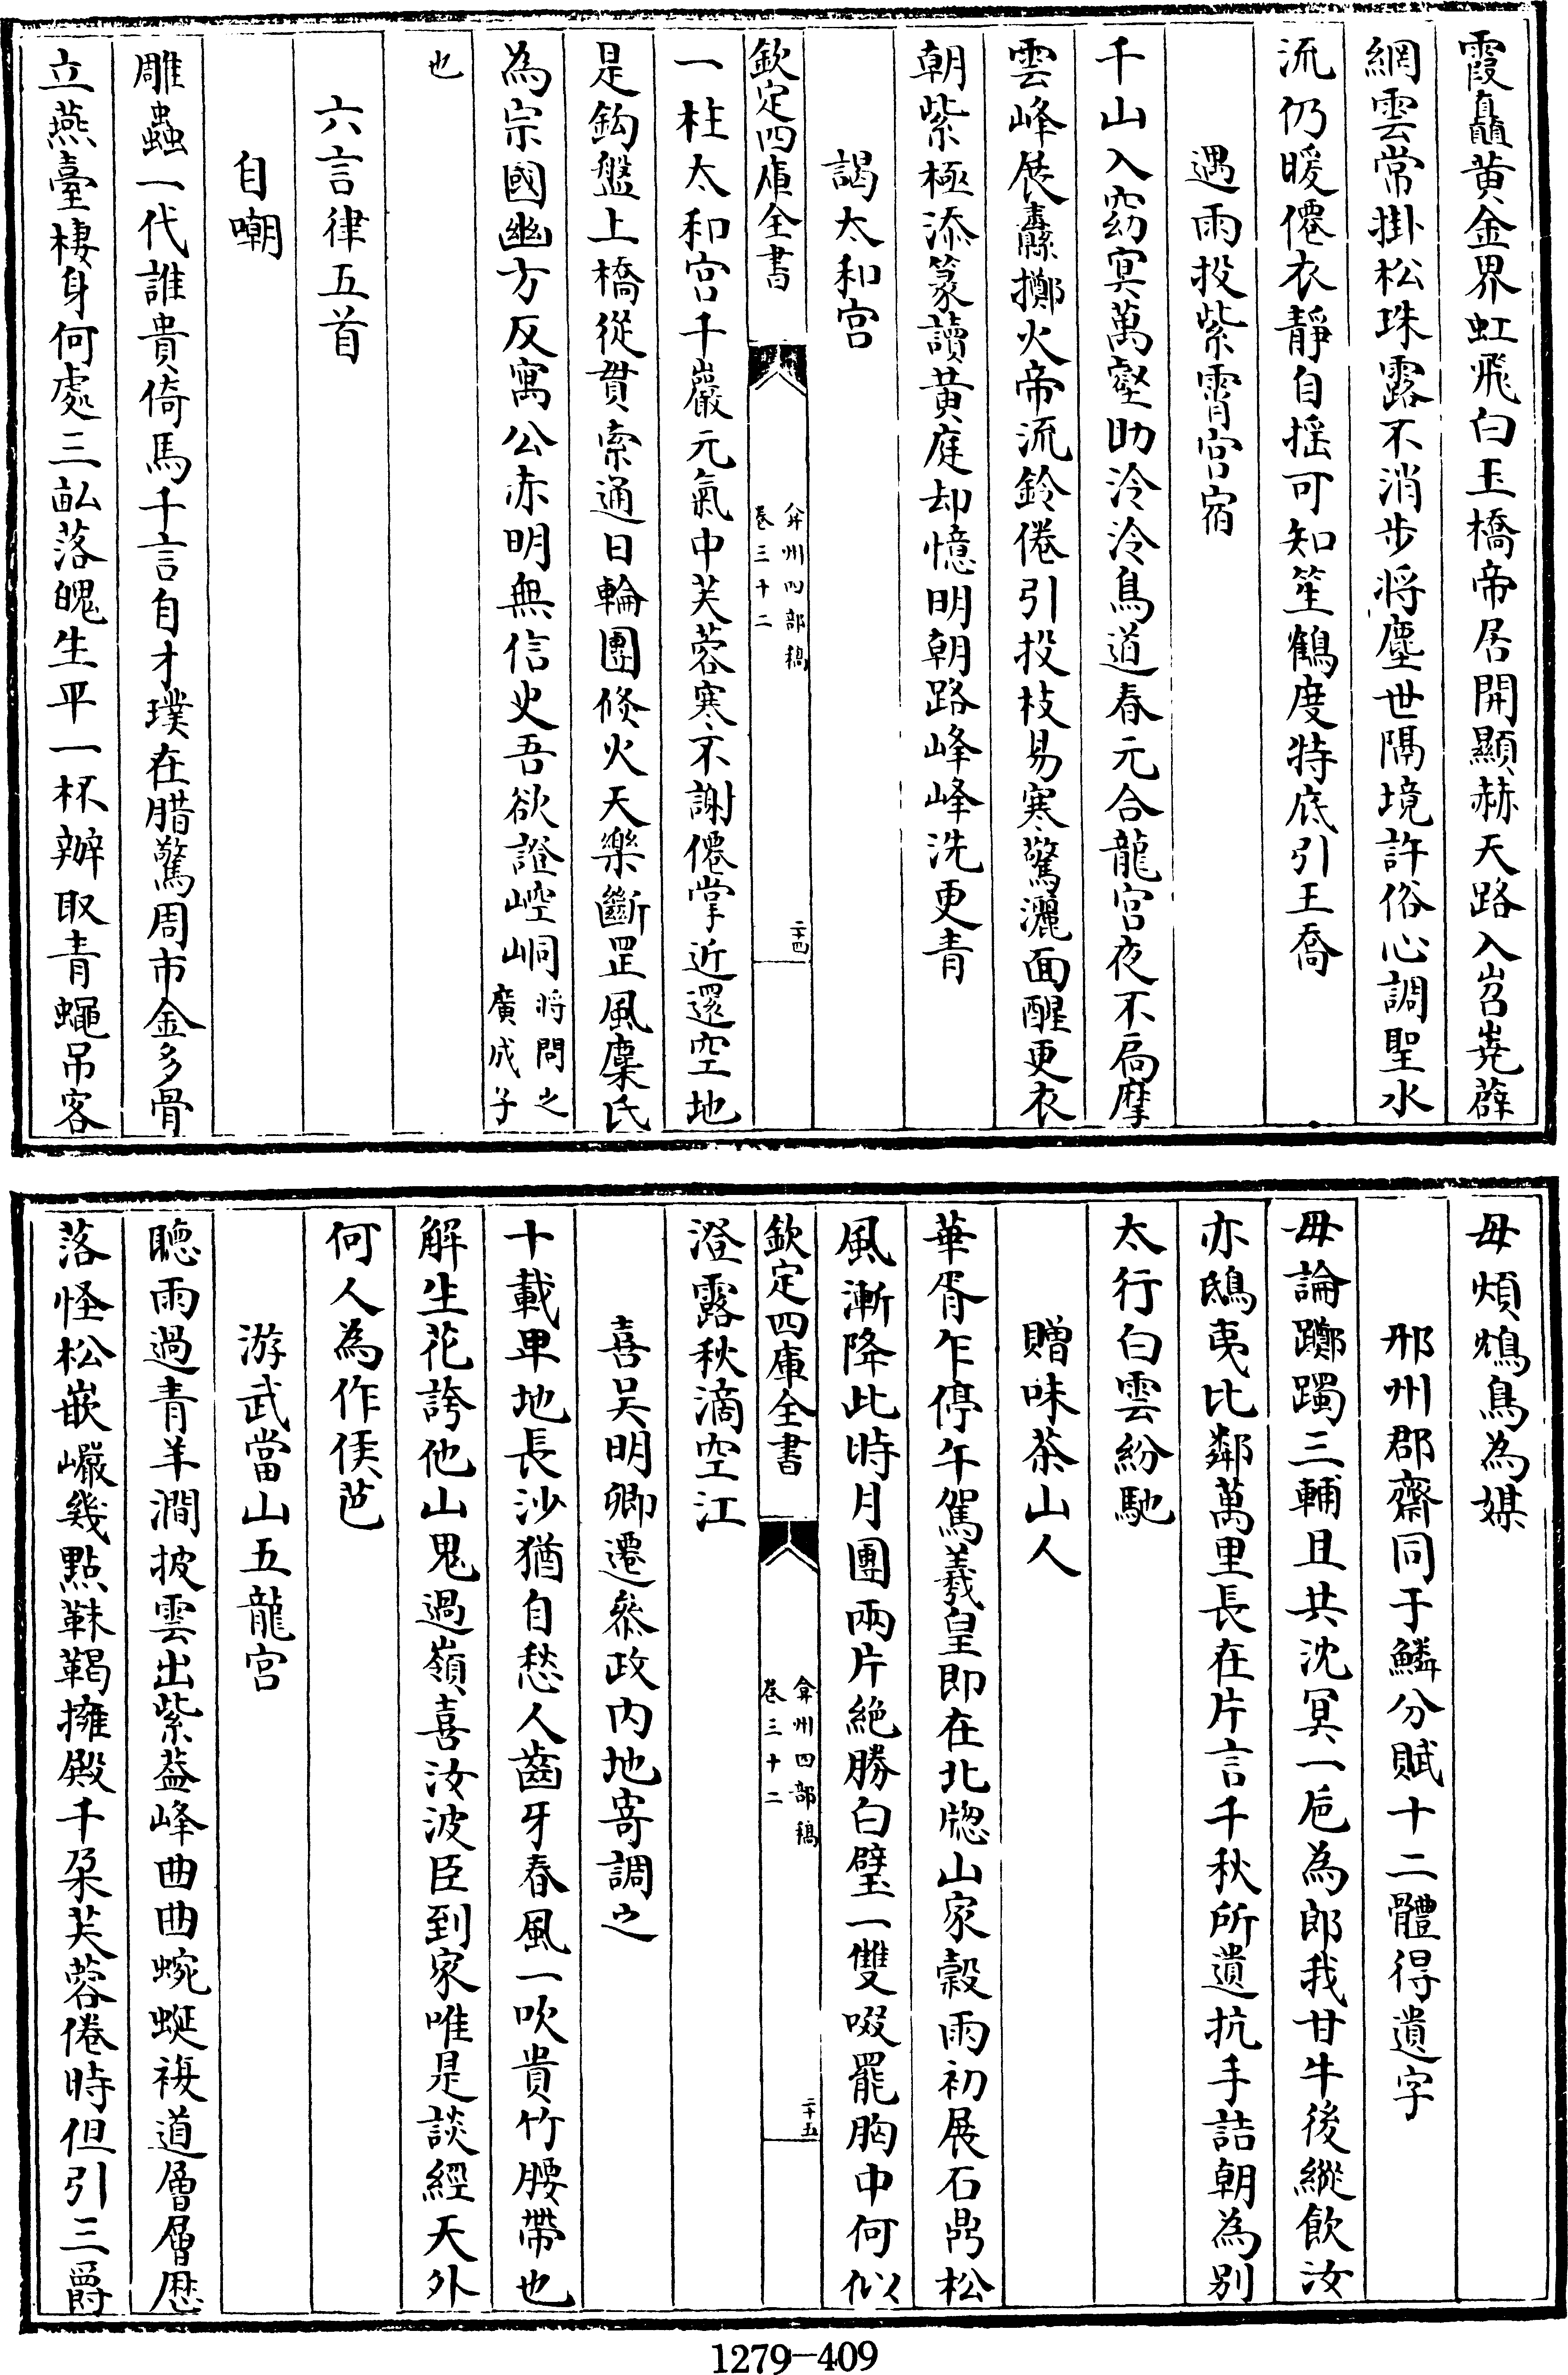 霞矗黄金界虹飛白玉橋帝居開顯赫天路入岧嶤薜
網雲常掛松珠露不消步将塵世隔境許俗心調聖水
流仍暖僊衣靜自揺可知笙鶴度特底引王喬
遇雨投紫霄宫宿
千山入窈㝠萬壑助泠泠鳥道春元合龍宫夜不扄摩
雲峰展纛擲火帝流鈴倦引投枝易寒驚灑面醒更衣
朝紫極添篆讀黄庭却憶明朝路峰峰洗更青
謁太和宫
欽定四庫全書
弇州四部稿
卷三十二
二十四
一柱太和宫千巖元氣中芙蓉寒不謝僊掌近還空地
是鈎盤上橋從貫索通日輪團倐火天樂斷罡風麇氏
為宗國幽方反寓公赤明無信史吾欲證崆峒將問之
廣成子
也
六言律五首
自嘲
雕蟲一代誰貴倚馬千言自才璞在腊驚周市金多骨
立燕臺棲身何處三畝落魄生平一杯辦取青蠅吊客
毋煩鴆鳥為媒
邢州郡齋同于鱗分賦十二體得遺字
毋論躑躅三輔且共沈冥一巵為郎我甘牛後縱飲汝
亦鴟夷比鄰萬里長在片言千秋所遺抗手詰朝為别
太行白雲紛馳
贈味茶山人
華胥乍停午駕羲皇即在北牕山家榖雨初展石鼎松
風漸降此時月團兩片絶勝白璧一雙啜罷胸中何似
欽定四庫全書
弇州四部稿
卷三十二
二十五
澄露秋滴空江
喜吴明卿遷叅政内地寄調之
十載卑地長沙猶自愁人齒牙春風一吹貴竹腰帶也
解生花誇他山鬼過嶺喜汝波臣到家唯是談經天外
何人為作侯芭
游武當山五龍宫
聽雨過青羊澗披雲出紫葢峰曲曲蜿蜒複道層層厯
落怪松嵌巗幾點靺鞨擁殿千朶芙蓉倦時但引三爵
1279-409